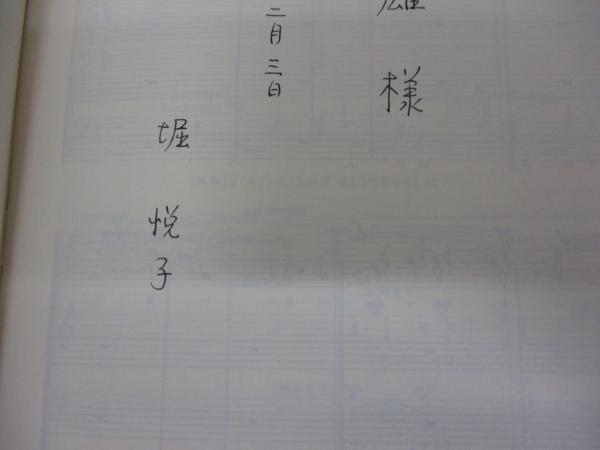 様
二月三日
堀 悦子